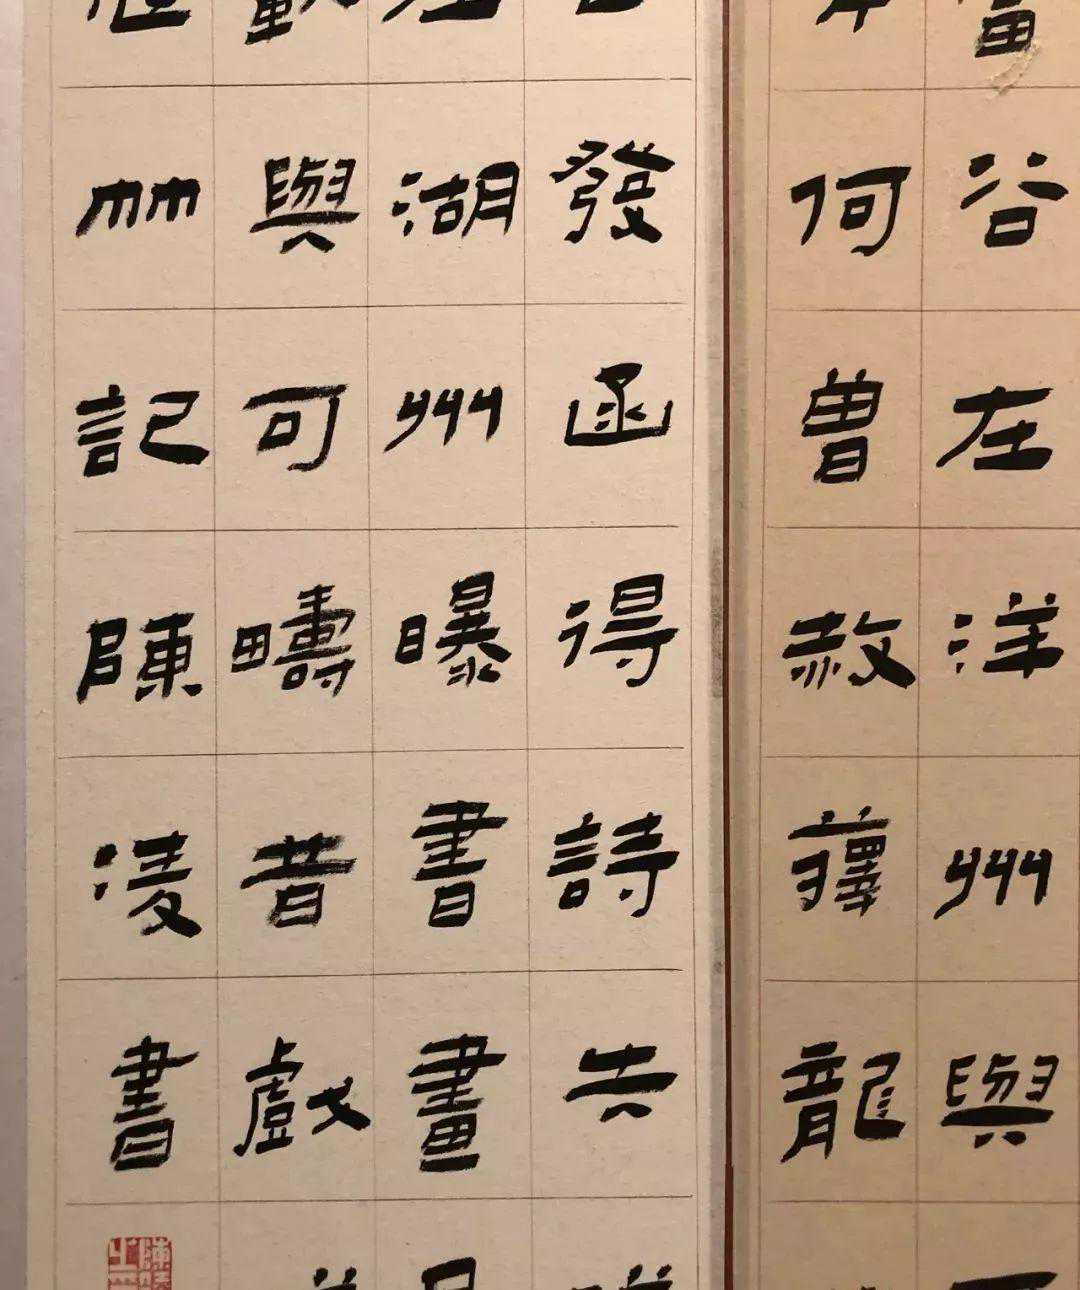 谷在洋州與
何曾赦籜龍
發函得詩失
湖州曝書畫
與可疇昔戲
竹記陳凌書